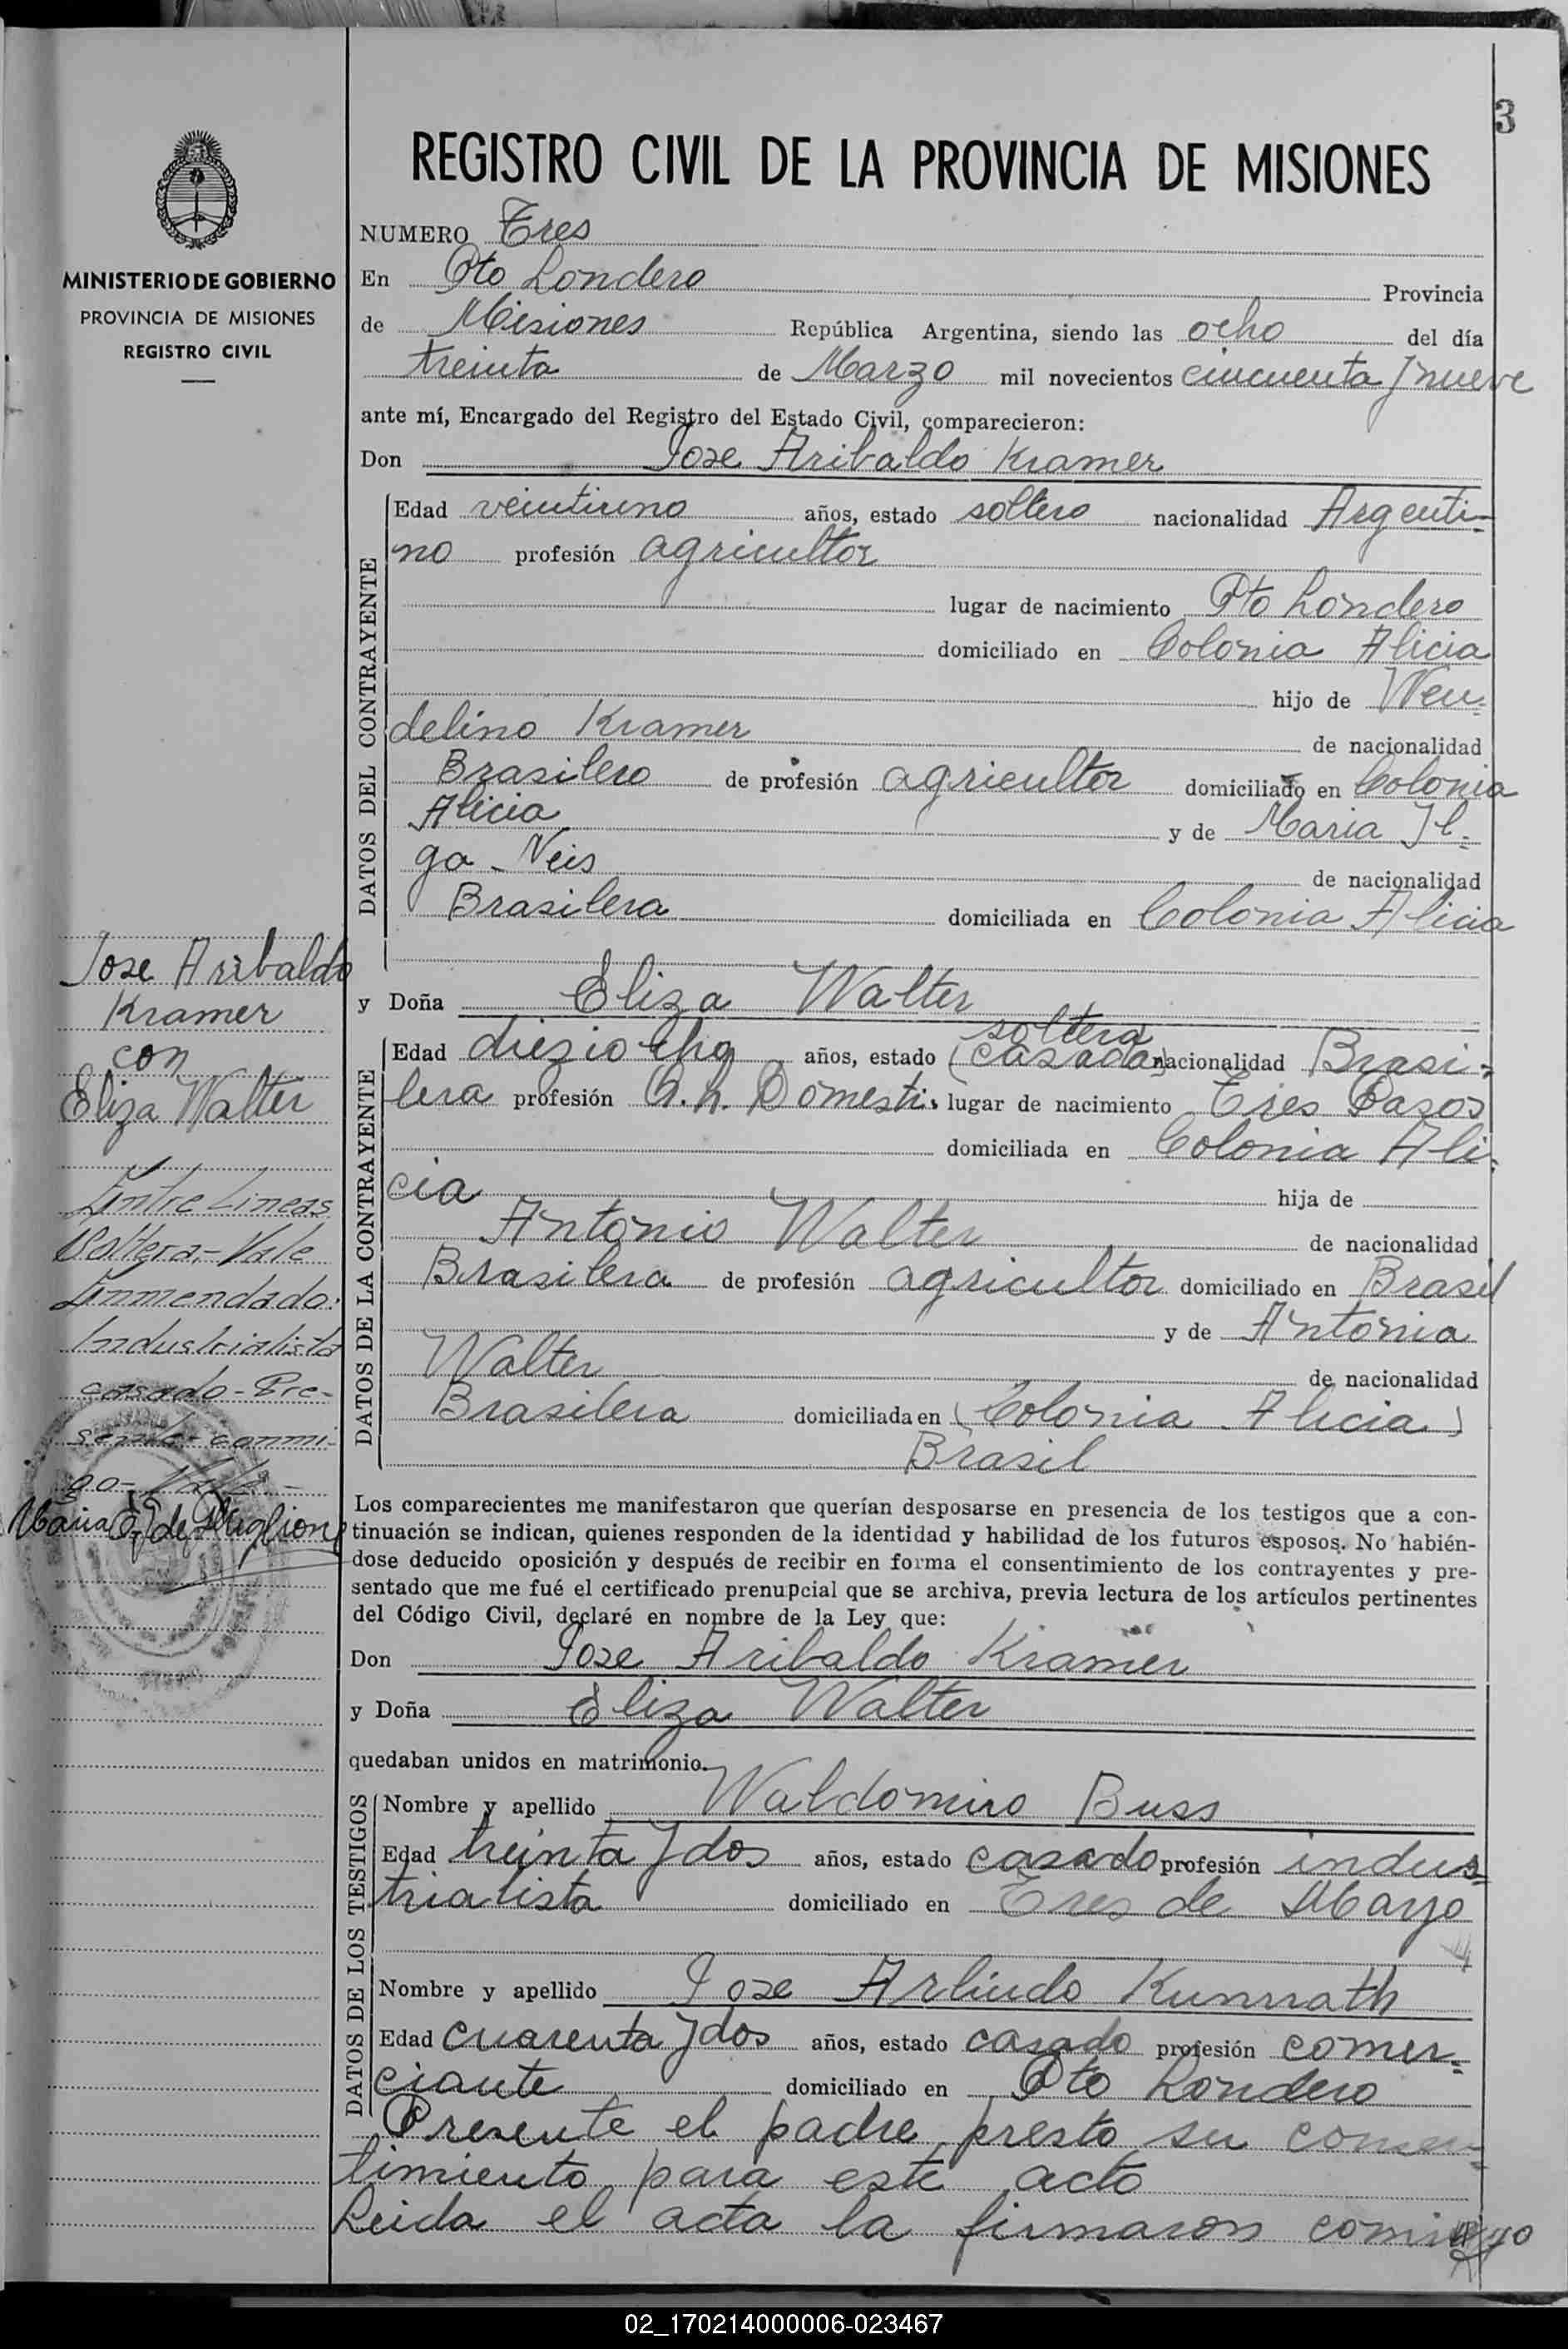 3
MINISTERIO DE GOBIERNO
PROVINCIA DE MISIONES
REGISTRO CIVIL
Jose Aribaldo
Kramer
con
Eliza Walter
Entre Lineas
Soltera - Vale
Enmendado:
Industrialista
casado - Pre-
sente - conmi-
go - Vale -
Maria de
REGISTRO CIVIL DE LA PROVINCIA DE MISIONES
NUMERO Tres
En Pto Londero Provincia
de Misiones República Argentina, siendo las ocho del día
treinta de Marzo mil novecientos cincuenta y nueve
ante mí, Encargado del Registro del Estado Civil, comparecieron:
Don Jose Aribaldo Kramer
DATOS DEL CONTRAYENTE
Edad veintiuno años, estado soltero nacionalidad Argenti-
no profesión agricultor
lugar de nacimiento Pto Londero
domiciliado en Colonia Alicia
hijo de Wen-
delino Kramer de nacionalidad
Brasilero de profesión agricultor domiciliado en Colonia
Alicia y de Maria Il-
ga Neis de nacionalidad
Brasilera domiciliada en Colonia Alicia
y Doña Eliza Walter
DATOS DE LA CONTRAYENTE
soltera
Edad dieziocho años, estado (casada) nacionalidad Brasi-
lera profesión Q. h. Domesti. lugar de nacimiento Tres Pasos
domiciliada en Colonia Ali-
cia hija de
Antonio Walter de nacionalidad
Brasilera de profesión agricultor domiciliado en Brasil
y de Antonia
Walter de nacionalidad
Brasilera domiciliada en (Colonia Alicia)
Brasil
Los comparecientes me manifestaron que querían desposarse en presencia de los testigos que a con-
tinuación se indican, quienes responden de la identidad y habilidad de los futuros esposos. No habién-
dose deducido oposición y después de recibir en forma el consentimiento de los contrayentes y pre-
sentado que me fué el certificado prenupcial que se archiva, previa lectura de los artículos pertinentes
del Código Civil, declaré en nombre de la Ley que:
Don Jose Aribaldo Kramer
y Doña Eliza Walter
quedaban unidos en matrimonio.
DATOS DE LOS TESTIGOS
Nombre y apellido Waldomiro Buss
Edad treinta y dos años, estado casado profesión indus-
trialista domiciliado en Tres de Mayo
Nombre y apellido Jose Arlindo Kunrath
Edad cuarenta y dos años, estado casado profesión comer-
ciante domiciliado en Pto Londero
Presente el padre presto su consen-
timiento para este acto
Leida el acta la firmaron conmigo
02_170214000006-023467